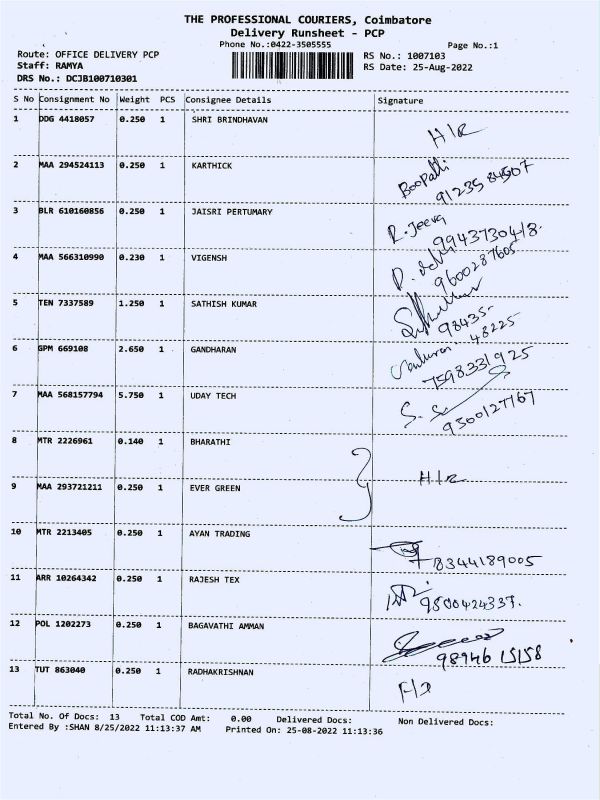 THE PROFESSIONAL COURIERS, Coimbatore
Delivery Runsheet - PCP
Phone No.:0422-3505555 Page No.:1
Route: OFFICE DELIVERY PCP RS No.: 1007103
Staff: RAMYA RS Date: 25-Aug-2022
DRS No.: DCJB100710301
S No Consignment No Weight PCS Consignee Details Signature
1 DDG 4418057 0.250 1 SHRI BRINDHAVAN H/R
2 MAA 294524113 0.250 1 KARTHICK Boopathi
91235 84507
3 BLR 610160856 0.250 1 JAISRI PERTUMARY R. Jeeva
9943730418.
4 MAA 566310990 0.230 1 VIGENSH
9600287605
5 TEN 7337589 1.250 1 SATHISH KUMAR
98435-
48225
6 GPM 669108 2.650 1 GANDHARAN
7598331925
7 MAA 568157794 5.750 1 UDAY TECH
9300127167
8 MTR 2226961 0.140 1 BHARATHI
H/R
9 MAA 293721211 0.250 1 EVER GREEN
10 MTR 2213405 0.250 1 AYAN TRADING
8344189005
11 ARR 10264342 0.250 1 RAJESH TEX
9500424337.
12 POL 1202273 0.250 1 BAGAVATHI AMMAN
98946 15158
13 TUT 863040 0.250 1 RADHAKRISHNAN
Total No. Of Docs: 13 Total COD Amt: 0.00 Delivered Docs: Non Delivered Docs:
Entered By :SHAN 8/25/2022 11:13:37 AM Printed On: 25-08-2022 11:13:36